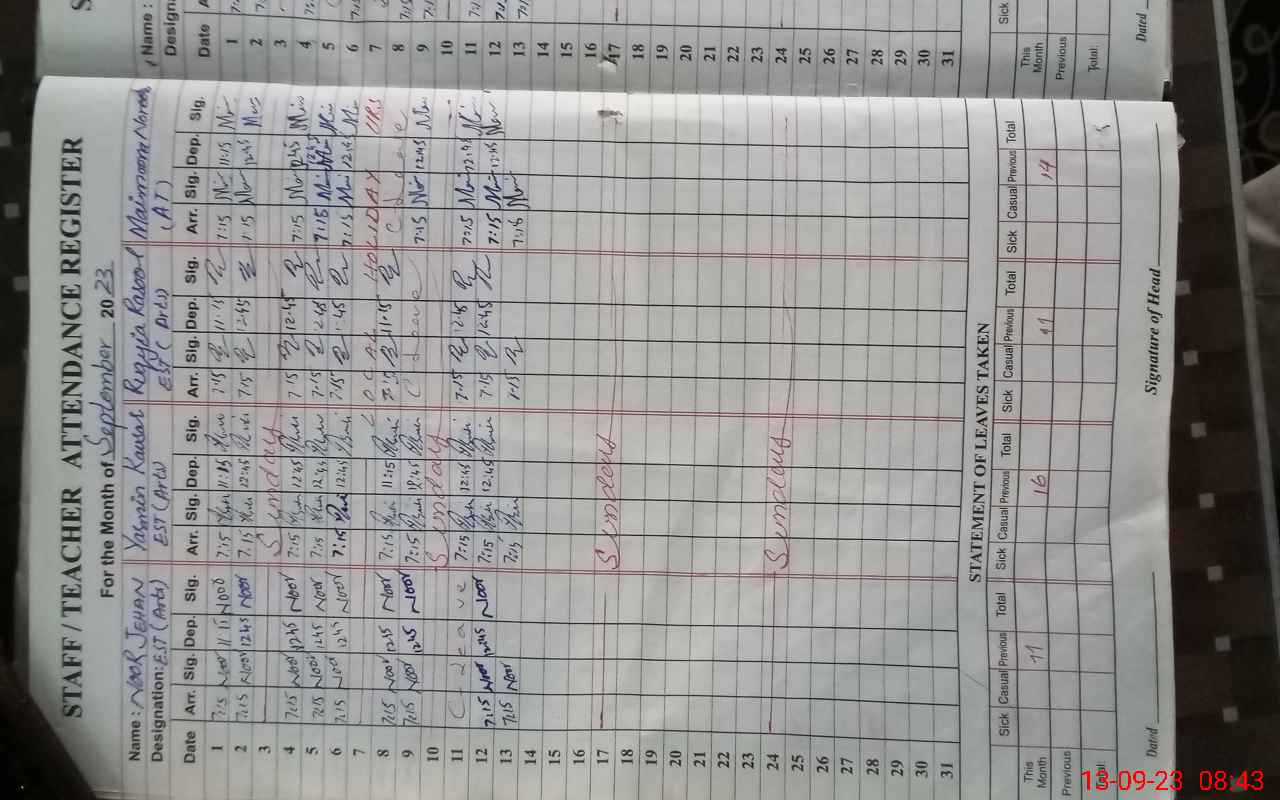 STAFF / TEACHER ATTENDANCE REGISTER
For the Month of September 2023
Name : NOOR JEHAN Yasmin Kausar Ruqyia Rasool Maimoona Noreen
Designation: EST (Arts) EST (Arts) EST (Arts) (AT)
Date Arr. Sig. Dep. Sig. Arr. Sig. Dep. Sig. Arr. Sig. Dep. Sig. Arr. Sig. Dep. Sig.
1 7:15 Noor 11:15 Noor 7:15 11:15 7:15 11:15 7:15 11:15
2 7:15 Noor 12:45 Noor 7:15 12:45 7:15 12:45 7:15 12:45
3 Sunday
4 7:15 Noor 12:45 Noor 7:15 12:45 7:15 12:45 7:15 12:45
5 7:15 Noor 12:45 Noor 7:15 12:45 7:15 2:45 7:15 12:45
6 7:15 Noor 12:45 Noor 7:15 12:45 7:15 1:45 7:15 12:45
7 LOCAL HOLIDAY URS
8 7:15 Noor 12:45 Noor 7:15 11:15 7:15 11:15 C leave
9 7:15 Noor 12:45 Noor 7:15 12:45 C leave 7:15 12:45
10 Sunday
11 C - leave 7:15 12:45 7:15 12:45 7:15 12:45
12 7:15 Noor 12:45 Noor 7:15 12:45 7:15 12:45 7:15 12:45
13 7:15 Noor 7:15 7:15 7:15
14
15
16
17 Sunday
18
19
20
21
22
23
24 Sunday
25
26
27
28
29
30
31
STATEMENT OF LEAVES TAKEN
Sick Casual Previous Total Sick Casual Previous Total Sick Casual Previous Total Sick Casual Previous Total
This Month 11 16 11 14
Previous
Total:
Dated Signature of Head
Name :
Designa
Date
1
2
3
4
5
6
7
8
9
10
11
12
13
14
15
16
17
18
19
20
21
22
23
24
25
26
27
28
29
30
31
Sick
This Month
Previous
Total:
Dated
13-09-23 08:43